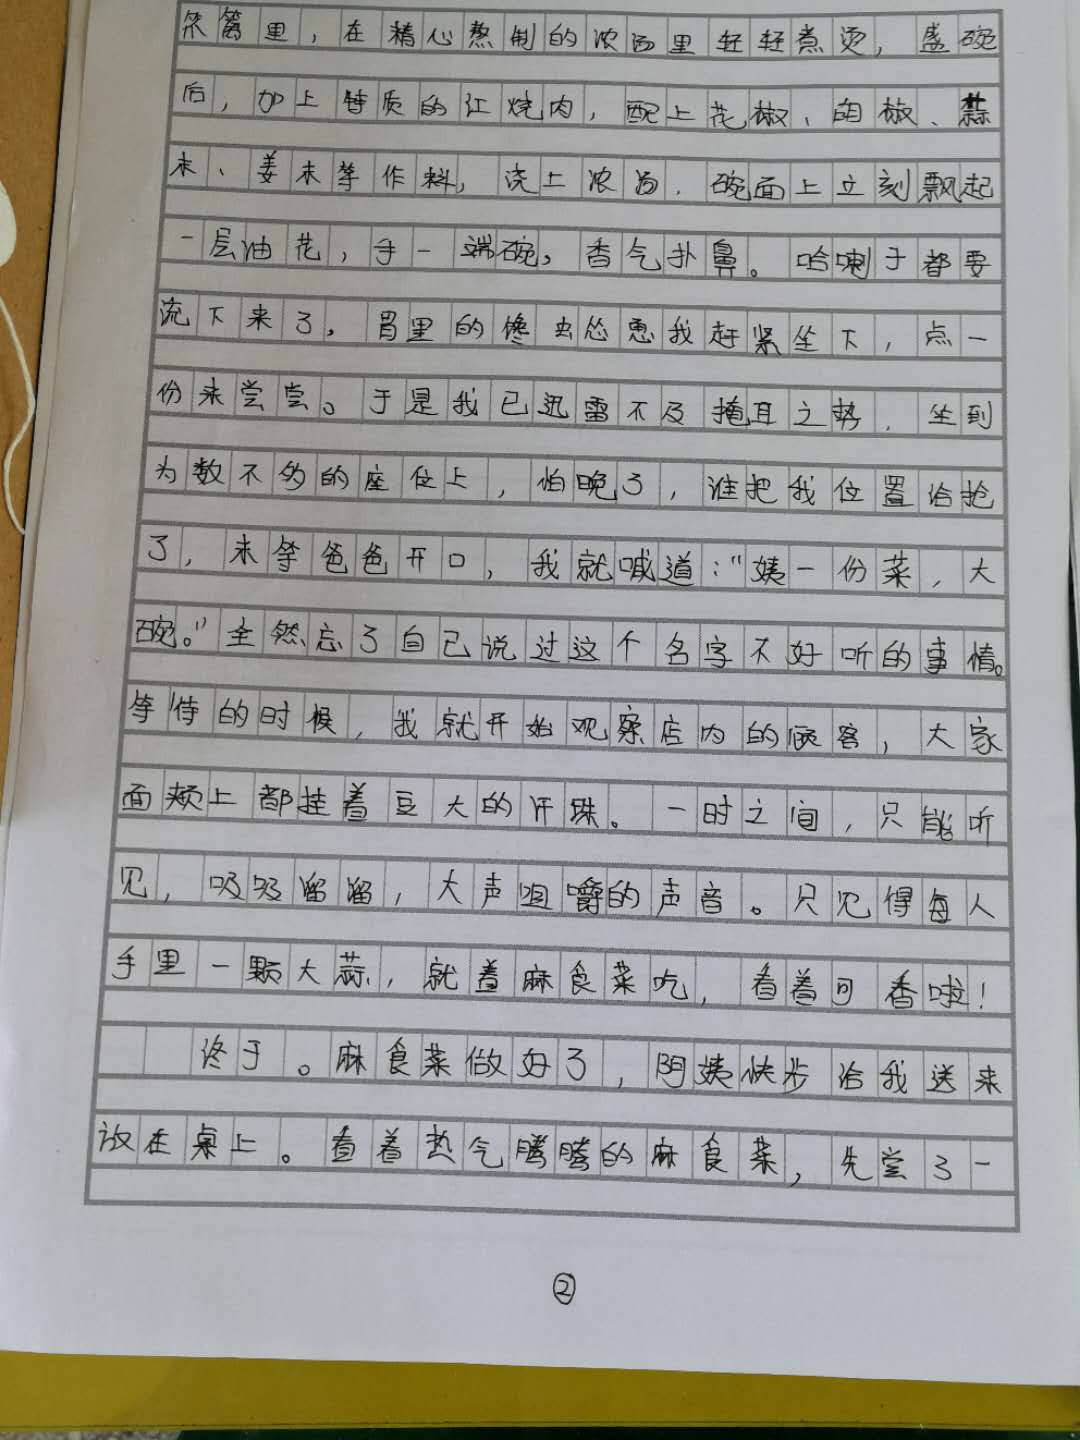 笊篱里，在精心熬制的浓汤里轻轻煮烫，盛碗
后，加上特质的红烧肉，配上花椒、胡椒、蒜
末、姜末等作料，浇上浓汤，碗面上立刻飘起
一层油花，手一端碗，香气扑鼻。哈喇子都要
流下来了，胃里的馋虫怂恿我赶紧坐下，点一
份来尝尝。于是我已迅雷不及掩耳之势，坐到
为数不多的座位上，怕晚了，谁把我位置给抢
了，未等爸爸开口，我就喊道：“姨一份菜，大
碗。”全然忘了自己说过这个名字不好听的事情。
等待的时候，我就开始观察店内的顾客，大家
面颊上都挂着豆大的汗珠。一时之间，只能听
见，吸吸溜溜，大声咀嚼的声音。只见得每人
手里一颗大蒜，就着麻食菜吃，看着可香啦！
终于。麻食菜做好了，阿姨快步给我送来
放在桌上。看着热气腾腾的麻食菜，先尝了一
②